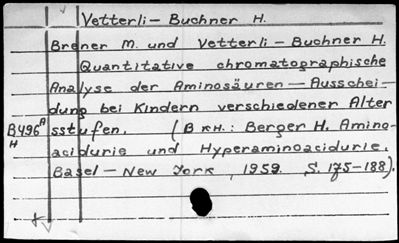 Vetterli – Buchner H.
Brener M. und Vetterli – Buchner H.
Quantitative chromatographische
Analyse der Aminosäuren – Ausschei-
dung bei Kindern verschiedener Alter
B496A sstufen. (В кн.: Berger H. Amino-
H acidurie und Hyperaminoacidurie.
Basel – New York, 1959. S. 175–188).